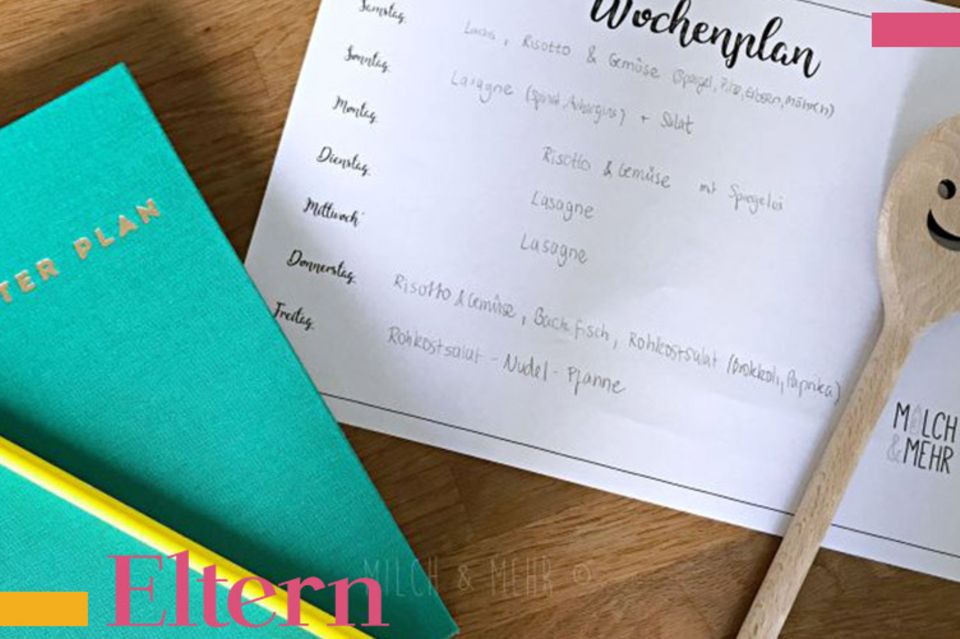 Wochenplan
Samstag Lachs, Risotto & Gemüse (Spargel, Pilze, Erbsen, Möhren)
Sonntag Lasagne (Spinat, Aubergine) + Salat
Montag Risotto & Gemüse mit Spiegelei
Dienstag Lasagne
Mittwoch Lasagne
Donnerstag Risotto & Gemüse, Backfisch, Rohkostsalat (Brokkoli, Paprika)
Freitag Rohkostsalat - Nudel - Pfanne
TER PLAN
MILCH
&MEHR
MILCH & MEHR ©
Eltern